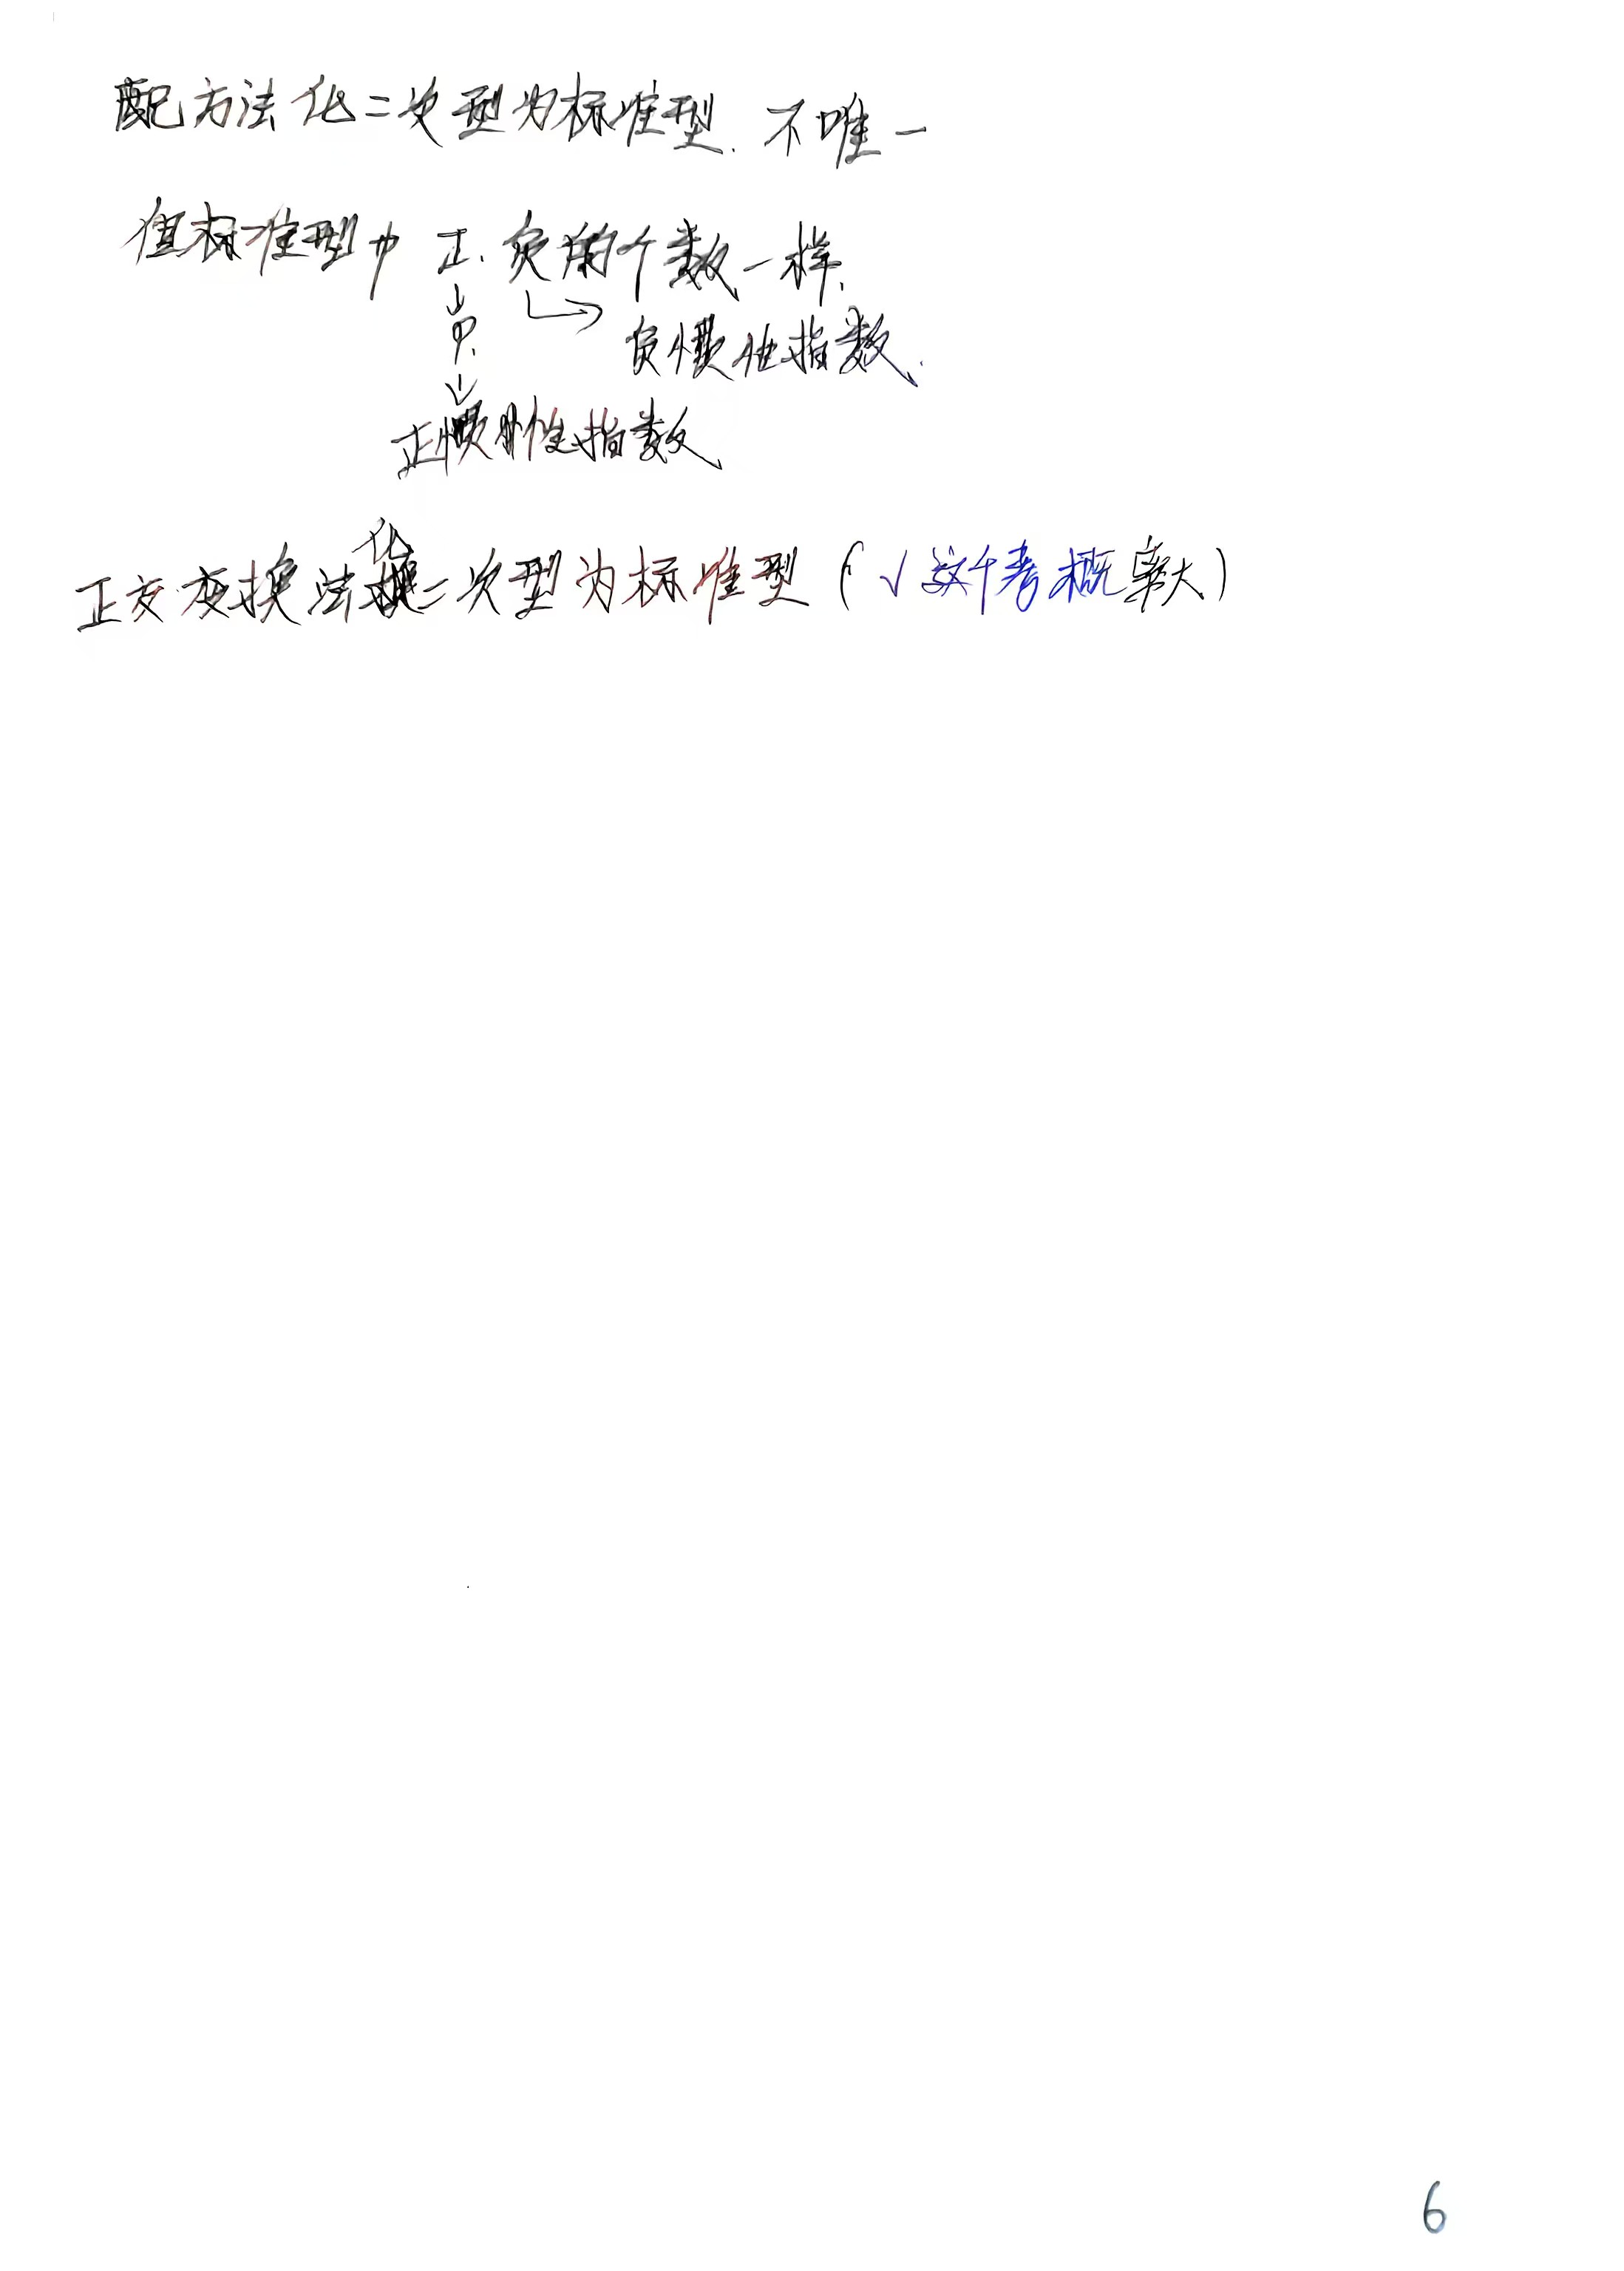 配方法化二次型为标准型. 不唯一
值标准型中 正. 负的个数一样.
↓ ↳
P.
负惯性指数.
↓
正惯性指数
化
正交变换法二次型为标准型 (√这个考概率大)
6